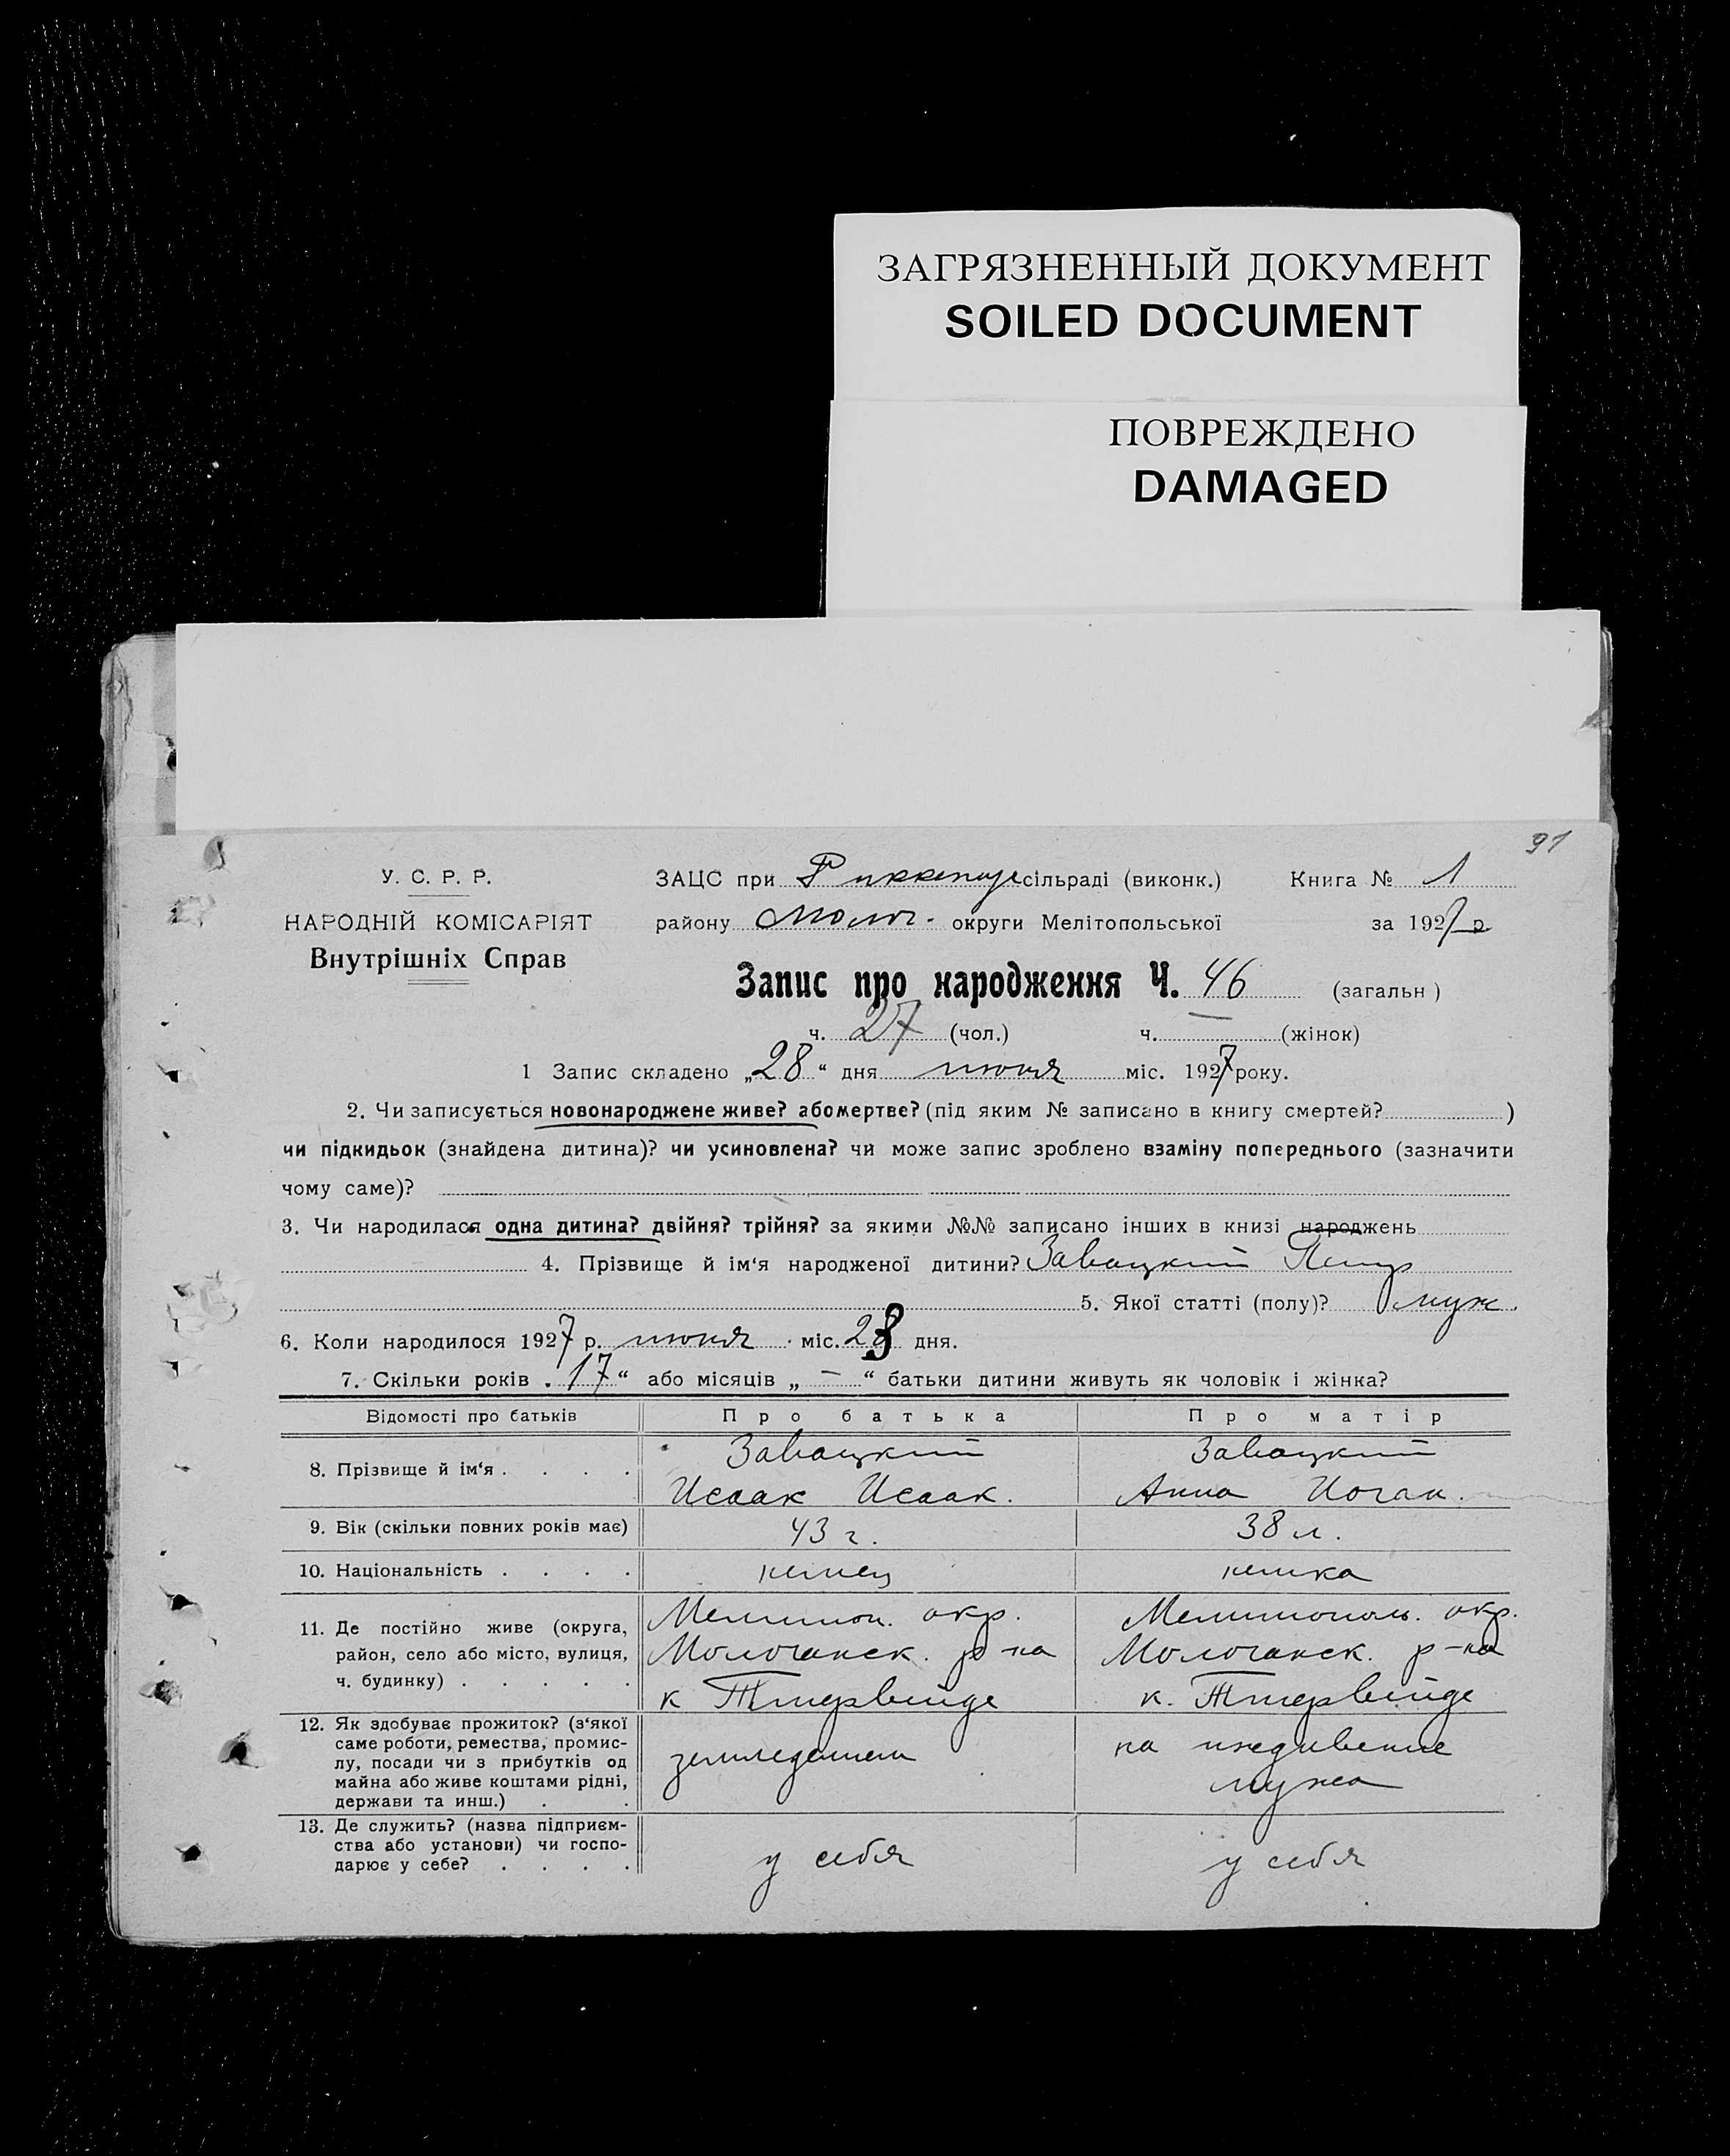 ЗАГРЯЗНЕННЫЙ ДОКУМЕНТ
SOILED DOCUMENT
ПОВРЕЖДЕНО
DAMAGED
91
У. С. Р. Р.
НАРОДНІЙ КОМІСАРІЯТ
Внутрішніх Справ
ЗАЦС при Риккенау сільраді (виконк.) Книга № 1
району Молоч. округи Мелітопольської за 1927 р.
Запис про народження Ч. 46 (загальн)
ч. 27 (чол.) ч. — (жінок)
1 Запис складено „28“ дня июня міс. 1927 року.
2. Чи записується новонароджене живе? або мертве? (під яким № записано в книгу смертей? )
чи підкидьок (знайдена дитина)? чи усиновлена? чи може запис зроблено взаміну попереднього (зазначити
чому саме)?
3. Чи народилася одна дитина? двійня? трійня? за якими №№ записано інших в книзі народжень
4. Прізвище й ім‘я народженої дитини? Завацкий Петр
5. Якої статті (полу)? муж.
6. Коли народилося 1927 р. июня міс. 23 дня.
7. Скільки років „17“ або місяців „—“ батьки дитини живуть як чоловік і жінка?
Відомості про батьків Про батька Про матір
8. Прізвище й ім‘я . . . . Завацкий Исаак Исаак. Завацкий Анна Иоган.
9. Вік (скільки повних років має) 43 г. 38 л.
10. Національність . . . . немец немка
11. Де постійно живе (округа, Мелитоп. окр. Мелитополь. окр.
район, село або місто, вулиця, Молочанск. р-на Молочанск. р-на
ч. будинку) . . . . . к Тигервейде к. Тигервейде
12. Як здобуває прожиток? (з‘якої
саме роботи, ремества, промис-
лу, посади чи з прибутків од земледелием на иждивение
майна або живе коштами рідні, мужа
держави та инш.) . .
13. Де служить? (назва підприєм-
ства або установи) чи госпо-
дарює у себе? . . . . у себя у себя